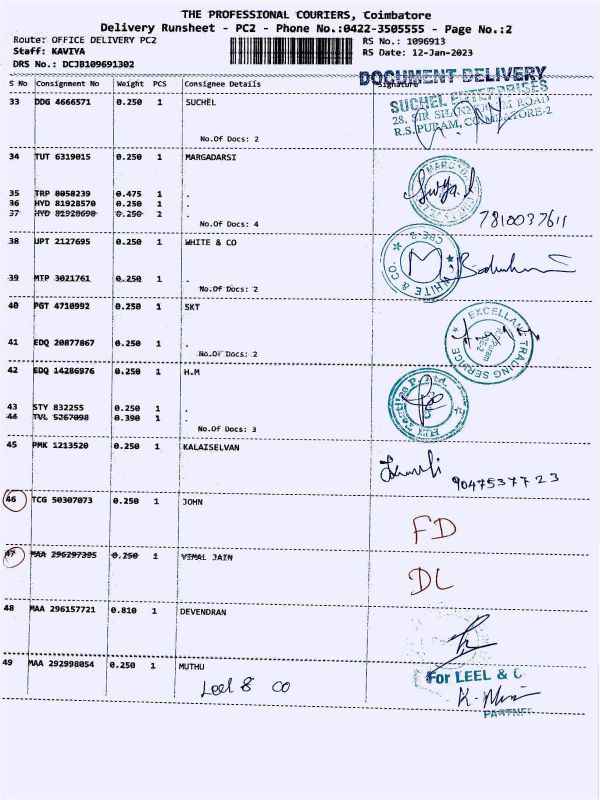 THE PROFESSIONAL COURIERS, Coimbatore
Delivery Runsheet - PC2 - Phone No.:0422-3505555 - Page No.:2
Route: OFFICE DELIVERY PC2
RS No.: 1096913
Staff: KAVIYA
RS Date: 12-Jan-2023
DRS No.: DCJB109691302
DOCUMENT DELIVERY
S No Consignment No Weight PCS Consignee Details Signature
33 DDG 4666571 0.250 1 SUCHEL
SUCHEL ENTERPRISES
28, SIR SHANMUGAM ROAD
R.S. PURAM, COIMBATORE-2
No.Of Docs: 2
34 TUT 6319015 0.250 1 MARGADARSI
35 TRP 8058239 0.475 1 .
36 HYD 81928570 0.250 1 .
37 HYD 81928698 0.250 2 .
No.Of Docs: 4
7810037611
38 UPT 2127695 0.250 1 WHITE & CO
WHITE & CO
CBE-2
39 MTP 3021761 0.250 1 .
No.Of Docs: 2
40 PGT 4710992 0.250 1 SKT
EXCELLANT TRADING SERVICE
41 EDQ 20877867 0.250 1 .
No.Of Docs: 2
42 EDQ 14286976 0.250 1 H.M
43 STY 832255 0.250 1 .
44 TVL 5267098 0.390 1 .
No.Of Docs: 3
45 PMK 1213520 0.250 1 KALAISELVAN
9047537723
46 TCG 50307073 0.250 1 JOHN
FD
47 MAA 296297395 0.250 1 VIMAL JAIN
DL
48 MAA 296157721 0.810 1 DEVENDRAN
49 MAA 292998054 0.250 1 MUTHU
For LEEL & C
Leel & CO
PARTNER